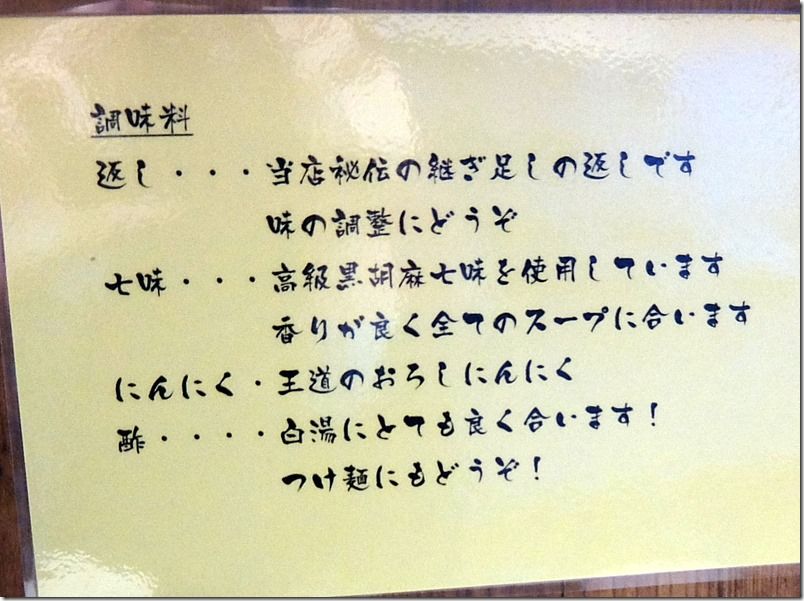 調味料
返し・・・当店秘伝の継ぎ足しの返しです
味の調整にどうぞ
七味・・・高級黒胡麻七味を使用しています
香りが良く全てのスープに合います
にんにく・王道のおろしにんにく
酢・・・・白湯にとても良く合います！
つけ麺にもどうぞ！